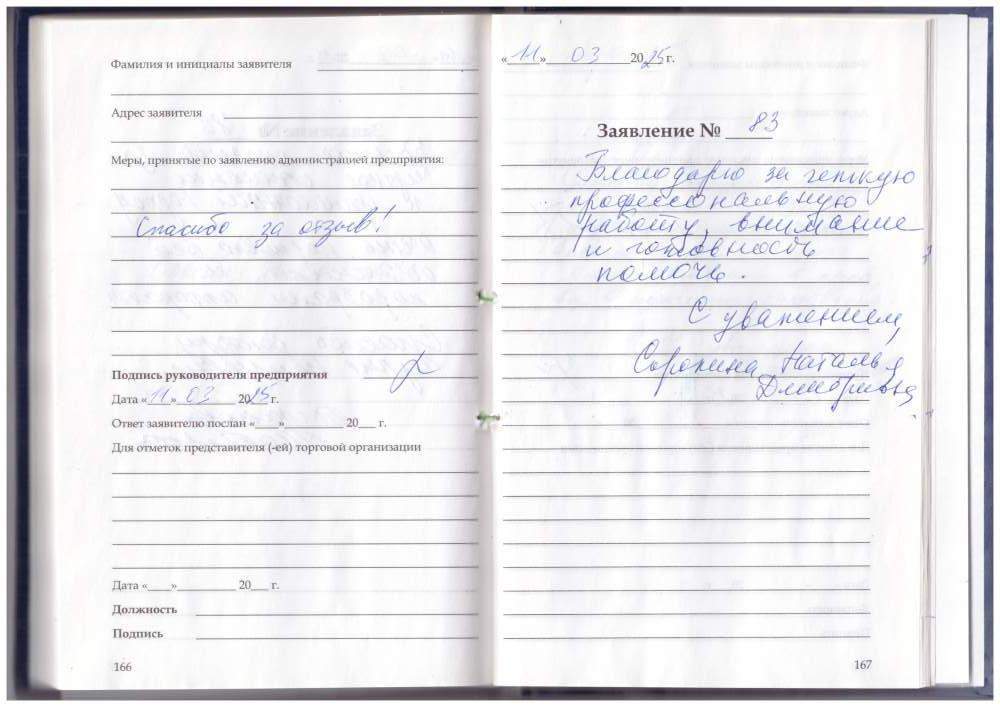 Фамилия и инициалы заявителя
Адрес заявителя
Меры, принятые по заявлению администрацией предприятия:
Спасибо за отзыв!
Подпись руководителя предприятия
Дата «11» 03 2025 г.
Ответ заявителю послан «___»__________ 20___ г.
Для отметок представителя (-ей) торговой организации
Дата «___»__________ 20___ г.
Должность
Подпись
166
«11» 03 2025 г.
Заявление № 83
Благодарю за четкую
профессиональную
работу, внимание
и готовность
помочь.
С уважением,
Сорокина Наталья
Дмитриевна
167